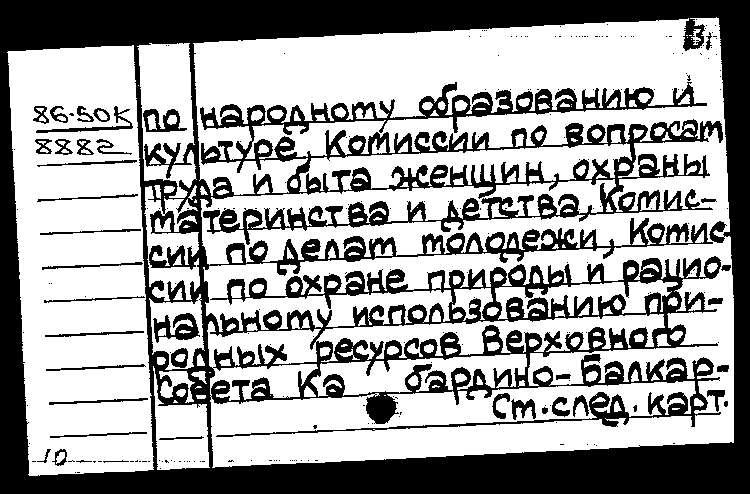 31
86-50К по народному образованию и
8882 культуре, Комиссии по вопросам
труда и быта женщин, охраны
материнства и детства, Комис-
сии по делам молодежи, Комис-
сии по охране природы и рацио-
нальному использованию при-
родных ресурсов Верховного
Совета Ка бардино-Балкар-
См. след. карт.
10